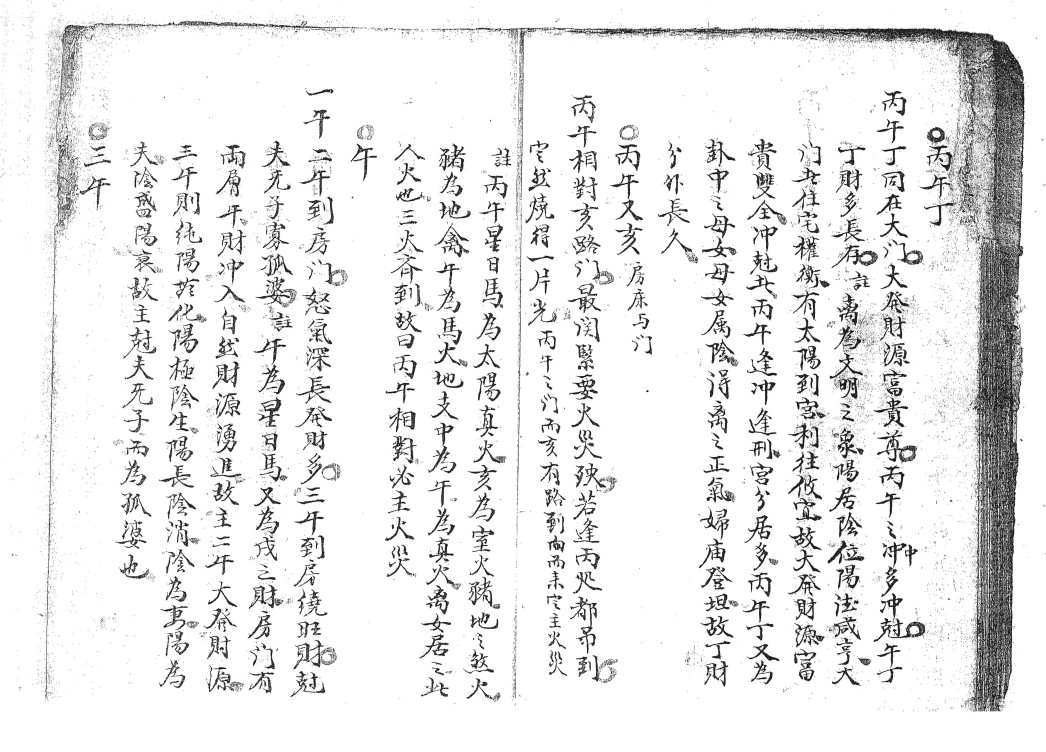 丙午丁
丙午丁同在大门大発財源富貴尊丙午之冲多冲尅午丁
中
丁財多長存註离為文明之象陽居陰位陽法咸亨大
门此住宅權衡有太陽到宮利往攸宜故大発財源富
貴雙全冲尅此丙午逢冲逢刑宮分居多丙午丁又為
卦中之母女母女属陰得离之正氣婦庙登坦故丁財
分外長久
丙午又亥 房床与门
丙午相對亥路门最関緊要火災殃若逢丙処都吊到
定然燒得一片光 丙午之门而亥有路到向而来定主火災
註丙午星日馬為太陽真火亥為室火豬地之煞火
豬為地禽午為馬火地支中為午為真火离女居之此
人火也三火斉到故曰丙午相對必主火災
午
一午二午到房门怒氣深長発財多三午到房繞旺財尅
夫死子寡孤婆註午為星日馬又為戌之財房门有
両肩午財冲入自然財源湧進故主二午大発財源
三午則純陽化陽極陰生陽長陰消陰為妻陽為
夫陰盛陽衰故主尅夫死子而為孤婆也
三午